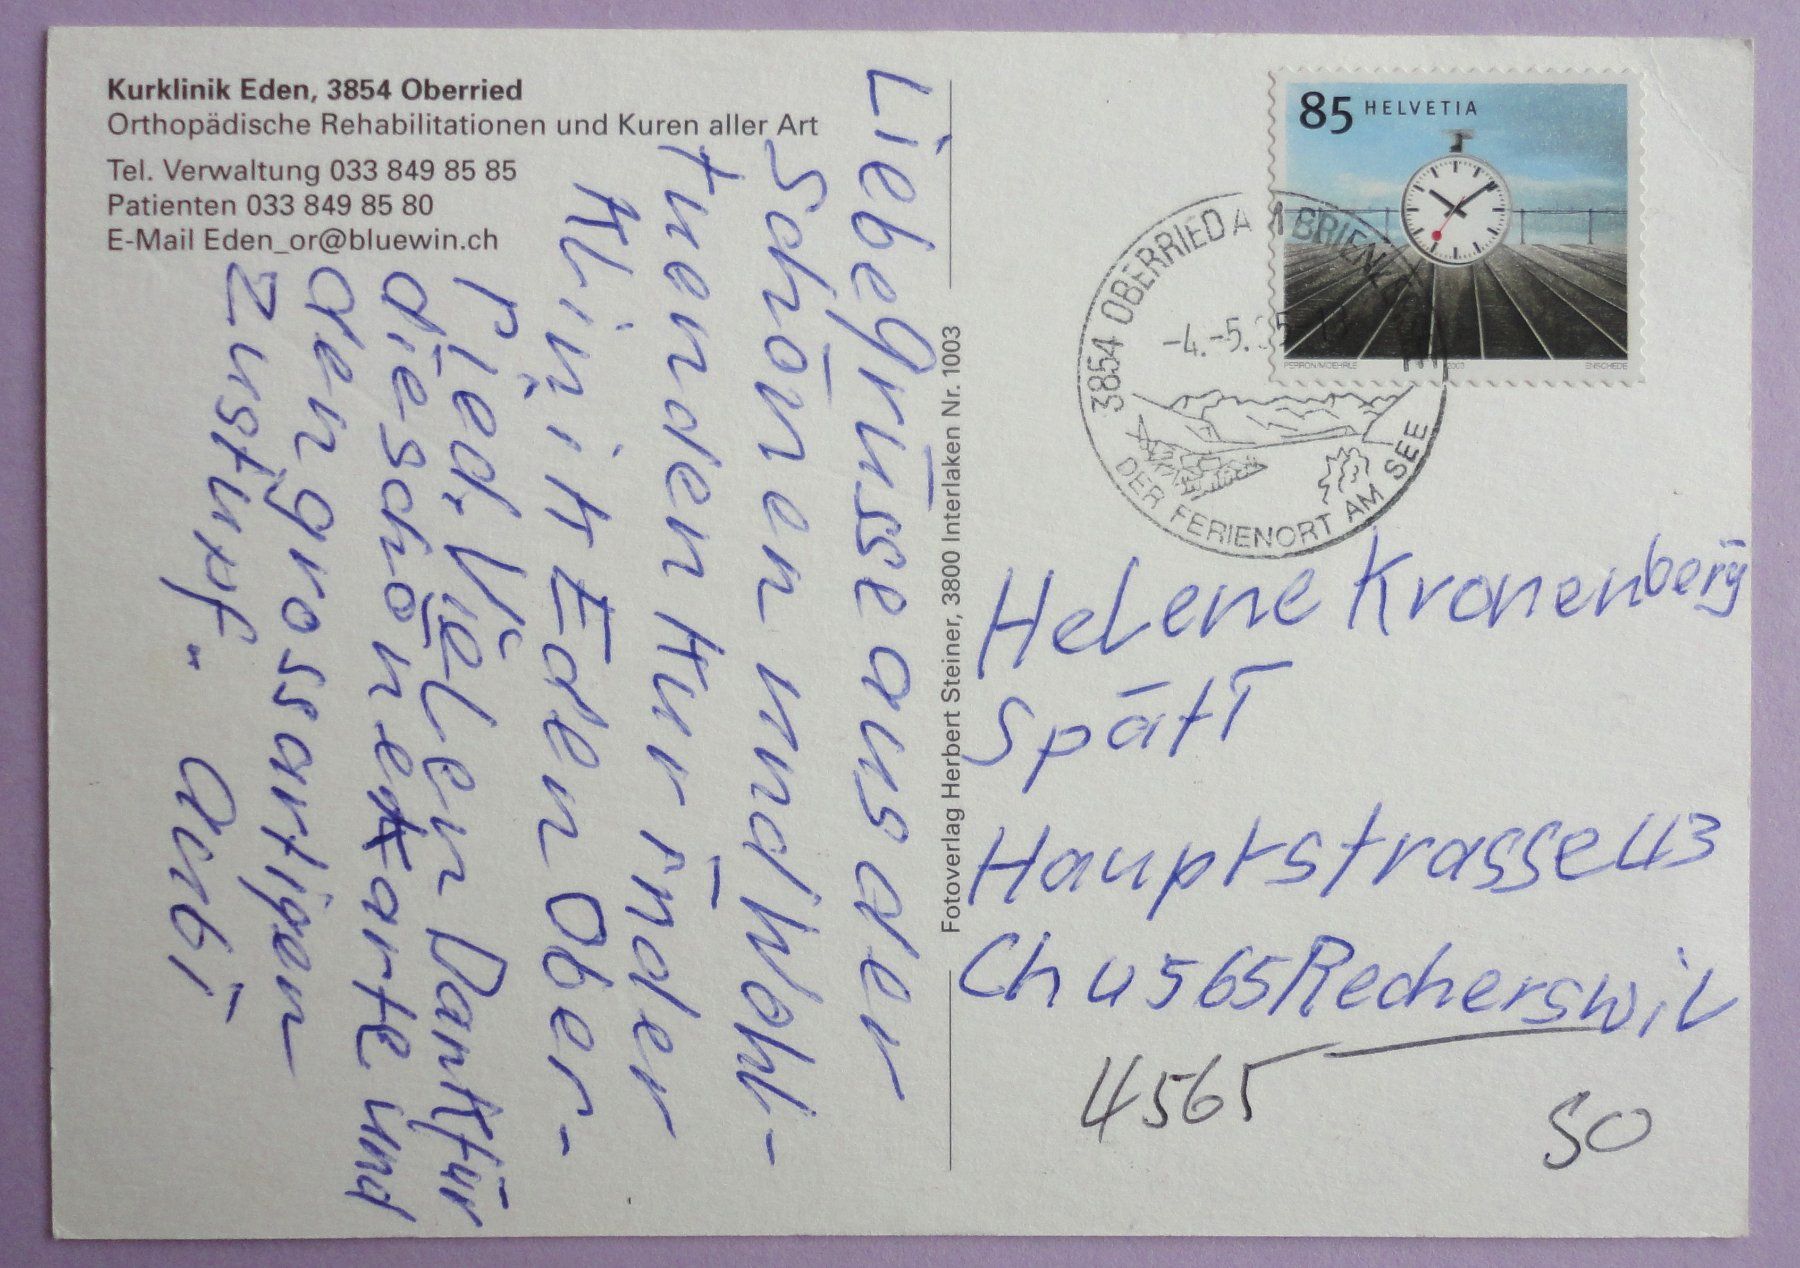 Kurklinik Eden, 3854 Oberried
Orthopädische Rehabilitationen und Kuren aller Art
Tel. Verwaltung 033 849 85 85
Patienten 033 849 85 80
E-Mail Eden_or@bluewin.ch
Liebe grüsse aus der
schönen und Wohl-
tuenden Kur in der
Klinik Eden Ober-
ried. Vielen Dank für
die schöne Karte und
den grossartigen
Zustupf.
Fotoverlag Herbert Steiner, 3800 Interlaken Nr. 1003
85 HELVETIA
PERRON/MOEHRLE 2003 ENSCHEDE
3854 OBERRIED AM BRIENZ
-4.-5.
DER FERIENORT AM SEE
Helene Kronenberg
Spätt
Hauptstrasse 43
Ch 4565 Recherswil
4565
SO